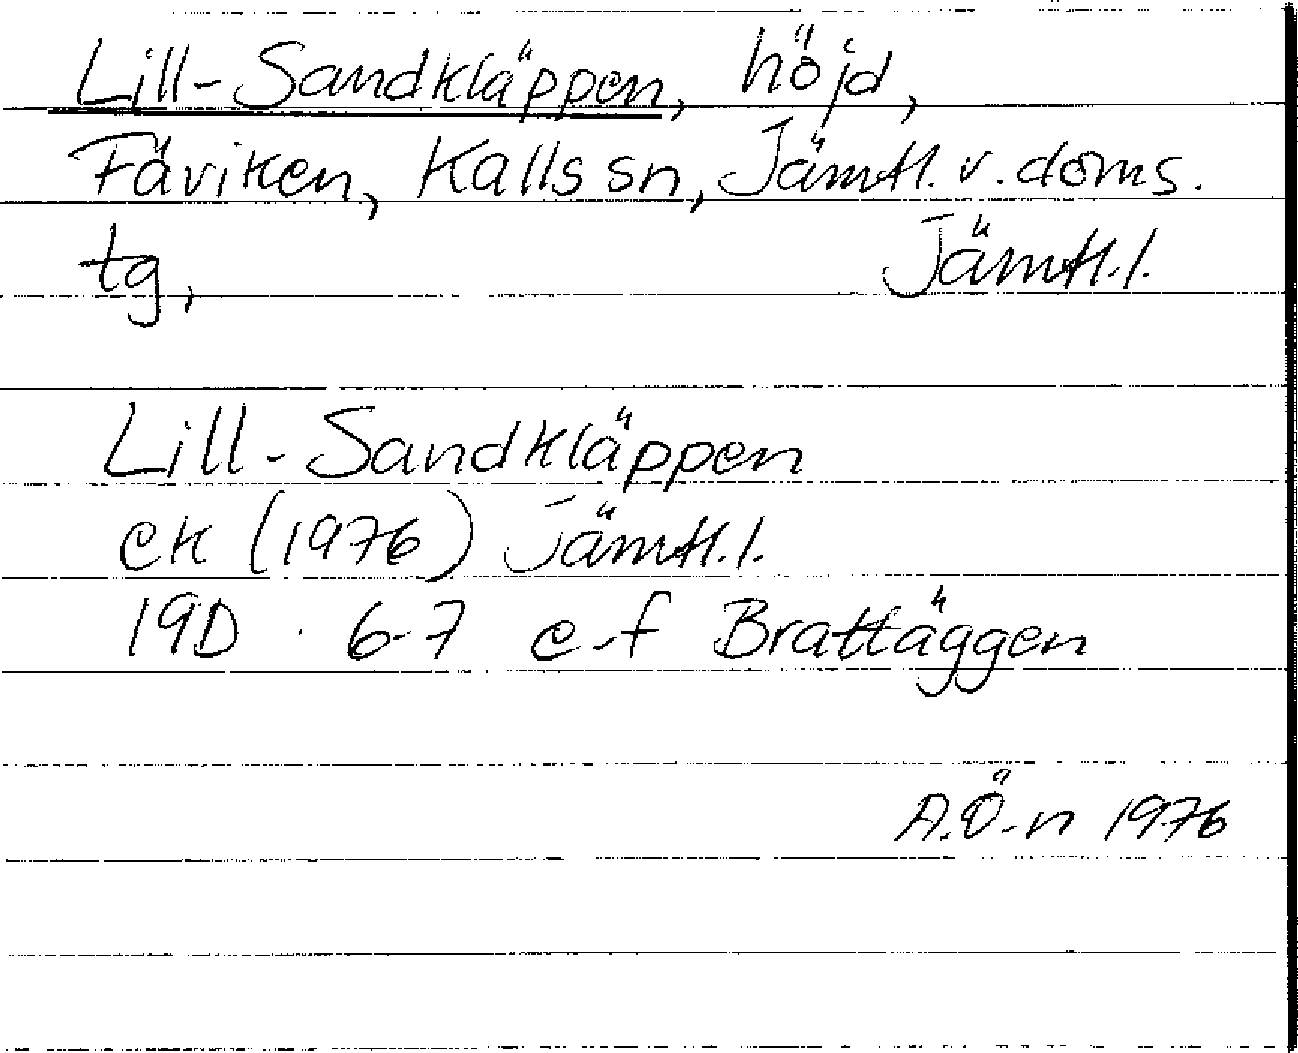 Lill-Sandkläppen, höjd,
Fäviken, Kalls sn, Jämtl. v. doms.
tg, Jämtl.l.
Lill-Sandkläppen
ek (1976) Jämtl.l.
19D . 6-7 e-f Brattäggen
A.Ö-n 1976